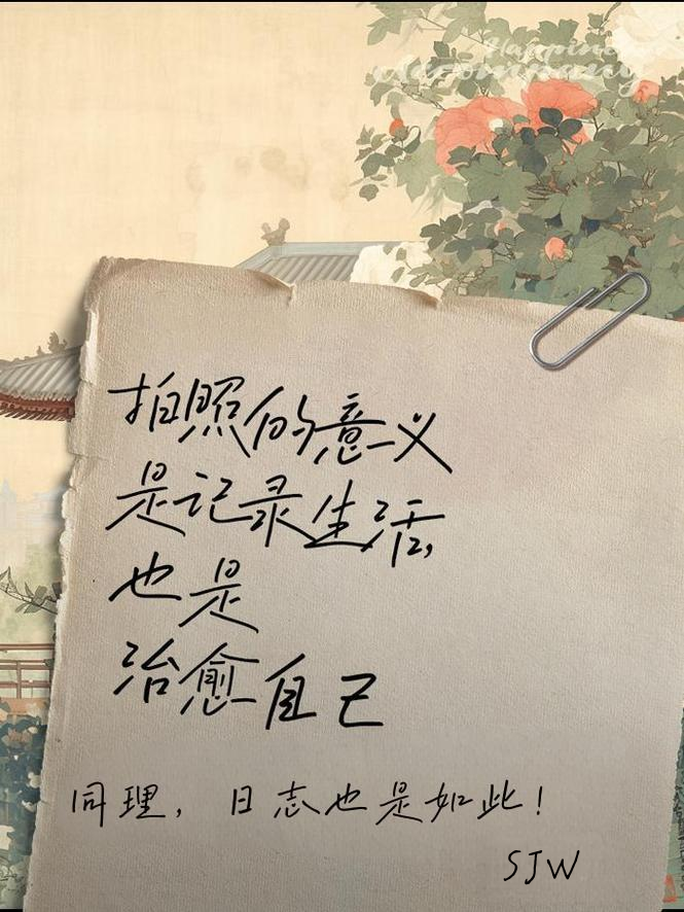 Happiness
Accompany
拍照的意义
是记录生活,
也是
治愈自己
同理，日志也是如此！
SJW